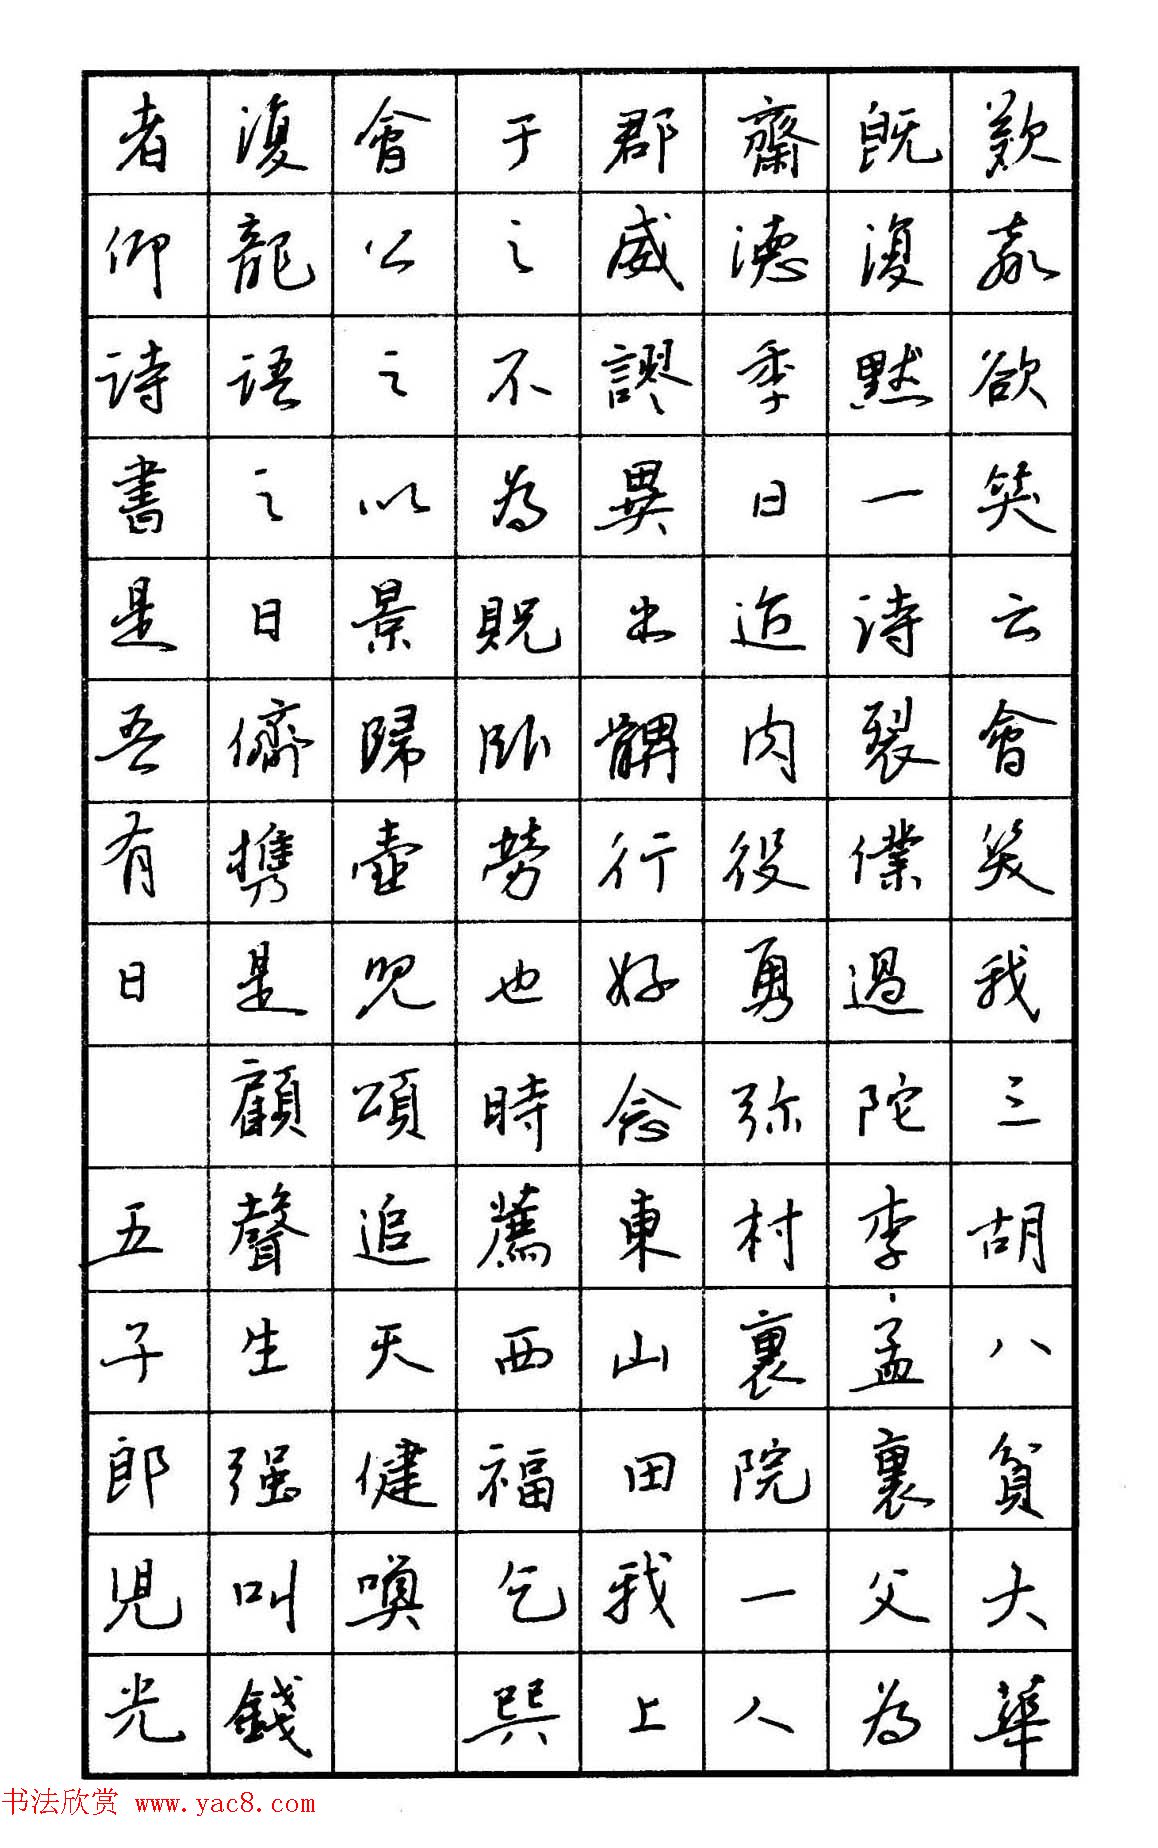 歎嘉欲笑云會笑我三胡八貧大華
既復默一詩裂僕過陀李孟裏父為
齋德季日迩内役勇弥村裏院一人
郡威謬異出髃行好念東山田我上
于之不為貺卧勞也時薦西福乞巽
會公之以景歸壺兕頌追天健喚
復龍語之日儕携是顧聲生强叫錢
者仰詩書是吾有日 五子郎児光
书法欣赏 www.yac8.com